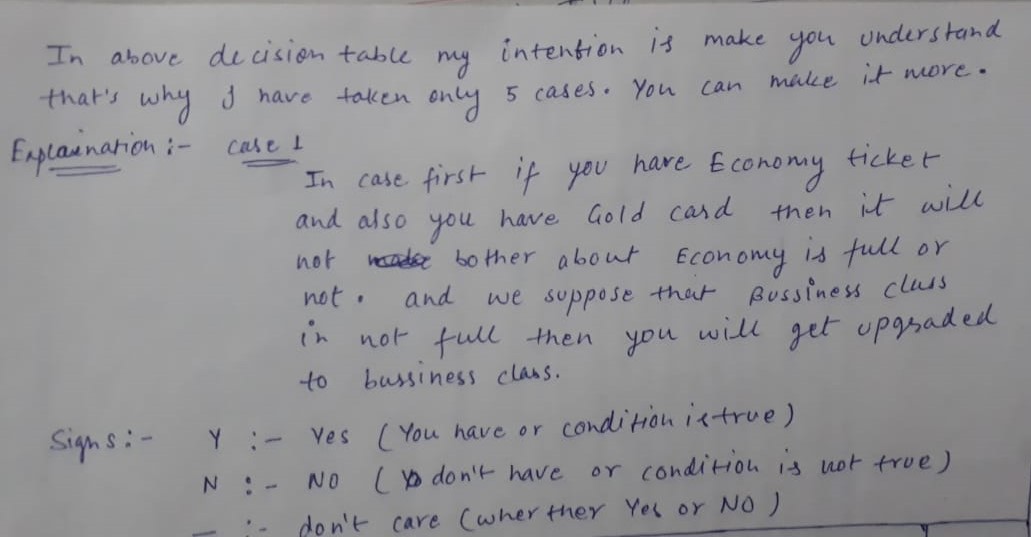 In above decision table my intention is make you understand
that's why I have taken only 5 cases. You can make it more.
Explaination :- case 1
In case first if you have Economy ticket
and also you have Gold card then it will
not bother about Economy is full or
not. and we suppose that Bussiness class
in not full then you will get upgraded
to bussiness class.
Signs :- Y :- Yes (You have or condition is true)
N :- NO (don't have or condition is not true)
— :- don't care (wherther Yes or NO)